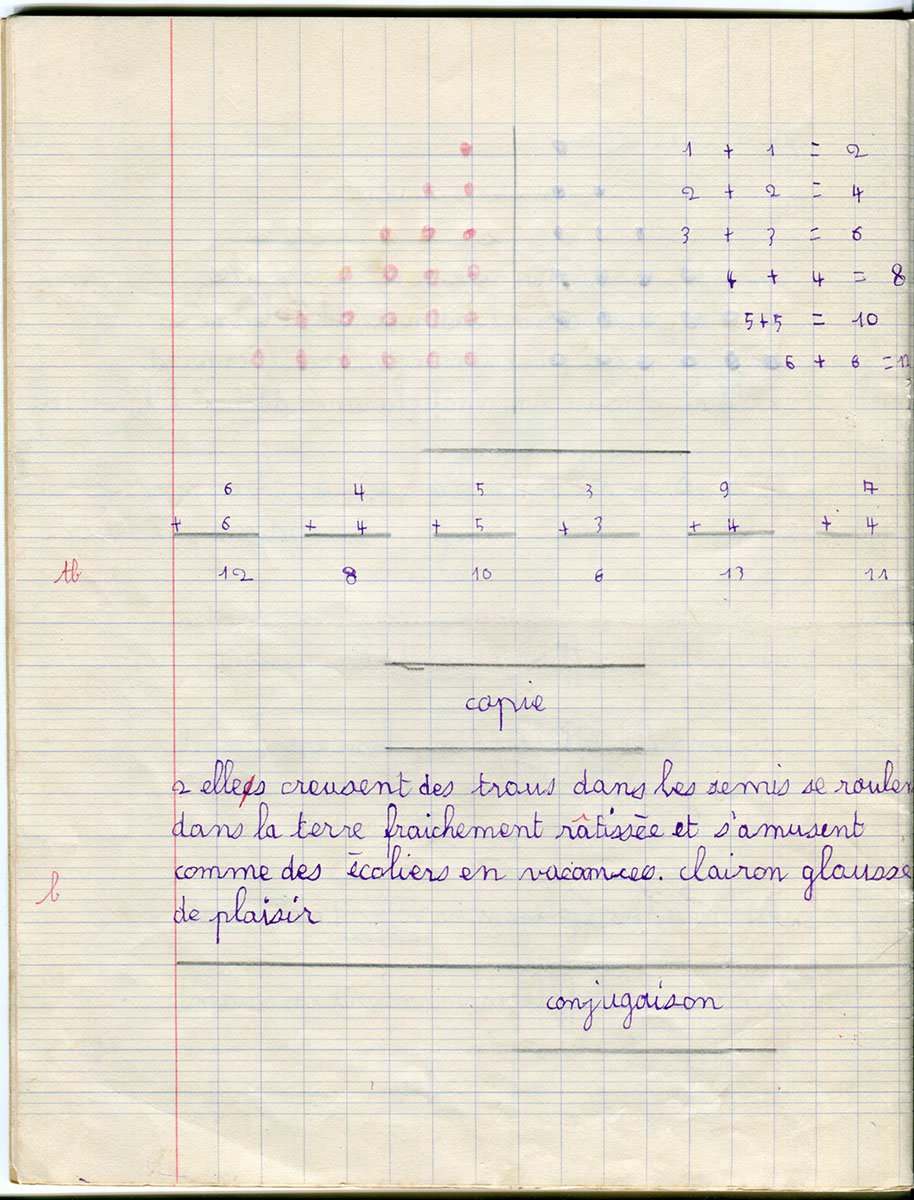 1 + 1 = 2
2 + 2 = 4
3 + 3 = 6
4 + 4 = 8
5+5 = 10
6 + 6 =12
6 4 5 3 9 7
+ 6 + 4 + 5 + 3 + 4 + 4
tb 12 8 10 6 13 11
copie
2 elles creusent des trous dans les semis se roulen
dans la terre fraichement râtissée et s'amusent
comme des écoliers en vacances. clairon glousse
b
de plaisir
conjugaison